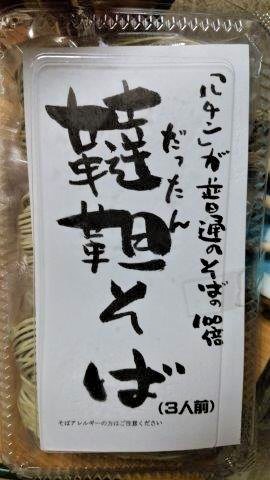 「ルチン」が普通のそばの100倍
だったん
韃靼そば
(3人前)
そばアレルギーの方はご注意ください